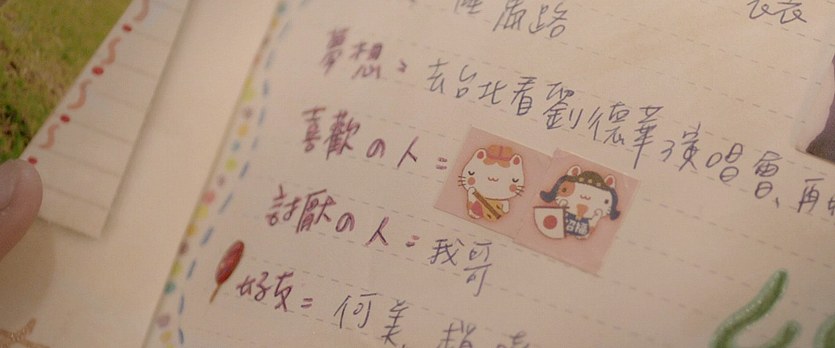 夢想：去台北看劉德華演唱會、再
喜歡の人=
討厭の人=我哥
好友=何美、趙